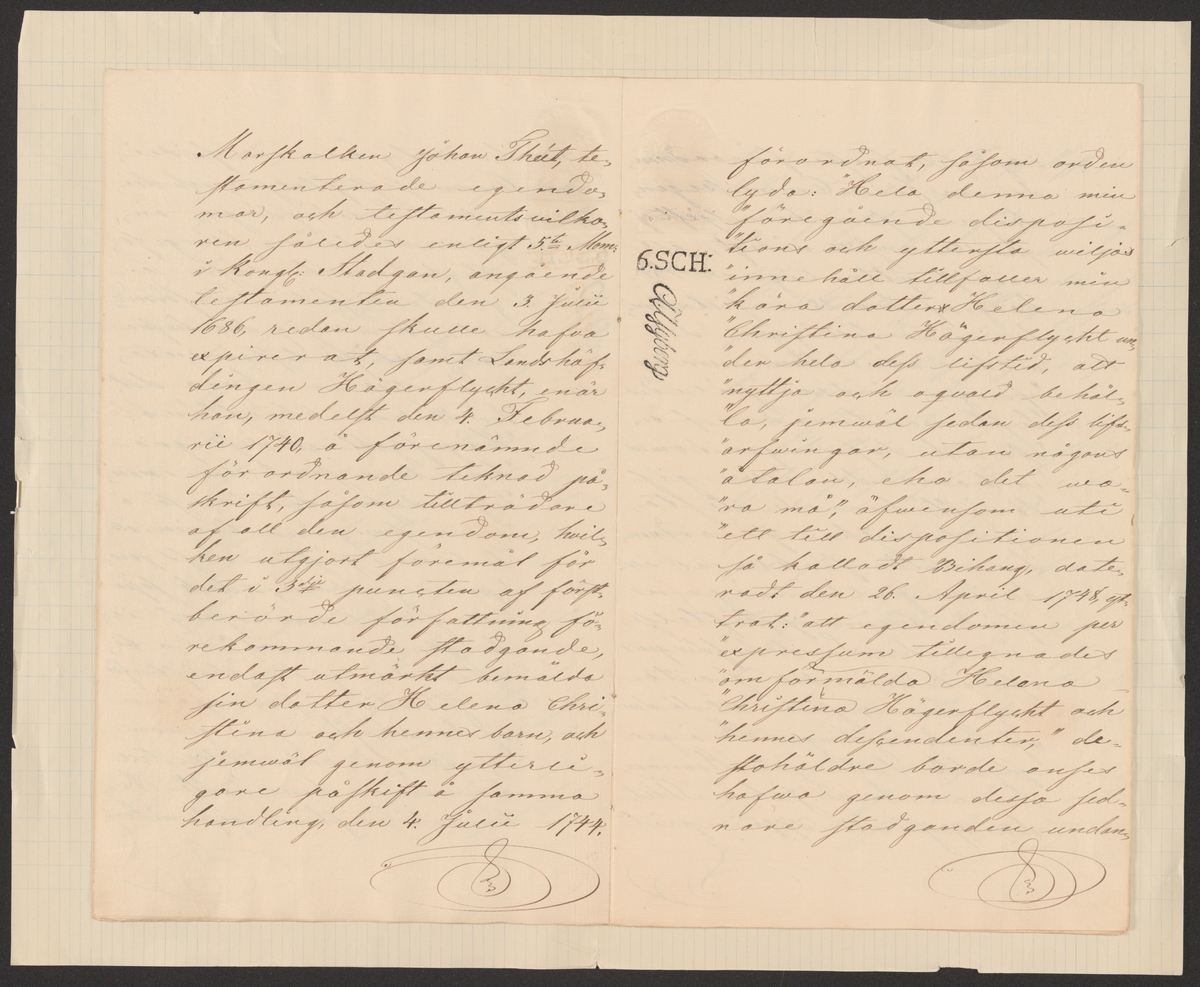 Marskalken Johan Théet, te-
stamenterade egendo-
mar, och testamentsvilko-
ren således enligt 5:te Mom:
i Kongl: Stadgan, angående
testamenten den 3. Julii
1686, redan skulle hafva
expirerat, samt Landshöf-
dingen Hägerflycht, enär
han, medelst den 4. Februa-
rii 1740, å förenämnde
förordnande teknad på-
skrift, såsom tillträdare
af all den egendom, hvil-
ken utgjort föremål för
det i 3:dje puncten af först-
berörde författning fö-
rekommande stadgande,
endast utmärkt bemälda
sin dotter Helena Chri-
stina och hennes barn, och
jemwäl genom ytterli-
gare påskift å samma
handling, den 4. Julii 1744.
6.SCH:
förordnat, såsom orden
lyda: "Hela denna min
"föregående disposi-
"tions och yttersta wiljas
"innehåll tillfaller min
"kära dotter Helena
"Christina Hägerflycht un-
"der hela dess lifstid, att
"nyttja och oqvald behål-
"la, jemwäl sedan dess lifs-
"arfwingar, utan någons
"åtalan, eho det wa-
"ra må", äfwensom uti
"ett till dispositionen
så kalladt Bihang, date-
radt den 26. April 1748, ytt-
trat: "att egendomen per
"expressum tillegnades
"omförmälda Helena
"Christina Hägerflycht och
"hennes descendenter," de-
stohäldre borde anses
hafwa genom dessa sed-
nare stadganden undan-